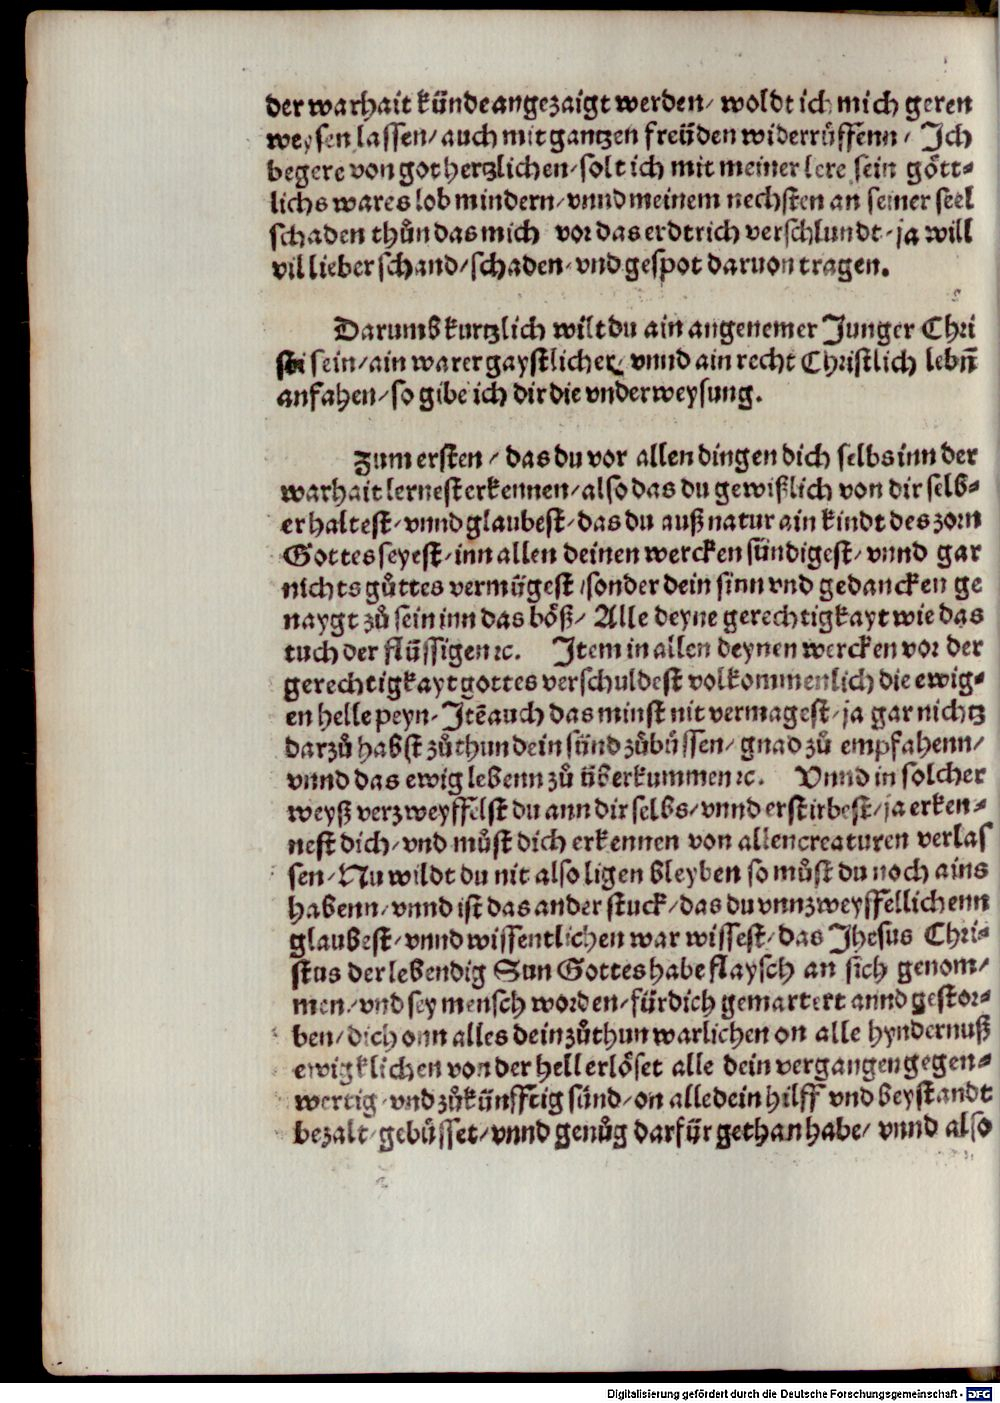 der warhait künde angezaigt werden/ woldt ich mich geren
weysen lassen/ auch mit gantzen freüden widerrůffenn/ Ich
begere von got hertzlichen/ solt ich mit meiner lere sein gött-
lichs wares lob mindern/ vnnd meinem nechsten an seiner seel
schaden thůn das mich vor das erdtrich verschlundt/ ja will
vil lieber schand/ schaden/ vnd gespot daruon tragen.
Darumb kurtzlich wilt du ain angenemer Junger Chri
sti sein/ ain warer gaystlicher/ vnnd ain recht Christlich lebñ
anfahen/ so gibe ich dir die vnderweysung.
Zum ersten/ das du vor allen dingen dich selbs inn der
warhait lernest erkennen/ also das du gewißlich von dir selb-
er haltest/ vnnd glaubest/ das du auß natur ain kindt des zorn
Gottes seyest/ inn allen deinen wercken sündigest/ vnnd gar
nichts gůttes vermügest/ sonder dein sinn vnd gedancken ge
naygt zů sein inn das böß/ Alle deyne gerechtigkayt wie das
tuch der flüssigen ꝛc. Item in allen deynen wercken vor der
gerechtigkayt gottes verschuldest volkommenlich die ewig-
en helle peyn/ Itē auch das minst nit vermagest/ ja gar nichtz
darzů habst zůthun dein sünd zůbůssen/ gnad zů empfahenn/
vnnd das ewig lebenn zů überkummen ꝛc. Vnnd in solcher
weyß verzweyffelst du ann dir selbs/ vnnd erstirbest/ ja erken-
nest dich/ vnd můst dich erkennen von allen creaturen verlas
sen/ Nu wildt du nit also ligen bleyben so můst du noch ains
habenn/ vnnd ist das ander stuck/ das du vnnzweyffellichenn
glaubest/ vnnd wissentlichen war wissest/ das Jhesus Chri-
stus der lebendig Sun Gottes habe flaysch an sich genom/
men/ vnd sey mensch worden/ für dich gemartert annd gestor-
ben/ dich onn alles dein zůthun warlichen on alle hyndernuß
ewigklichen von der hell erlöset alle dein vergangen gegen-
wertig vnd zůkünfftig sünd/ on alle dein hilff vnd beystandt
bezalt/ gebüsset/ vnnd genůg darfür gethan habe/ vnnd also
Digitalisierung gefördert durch die Deutsche Forschungsgemeinschaft - DFG